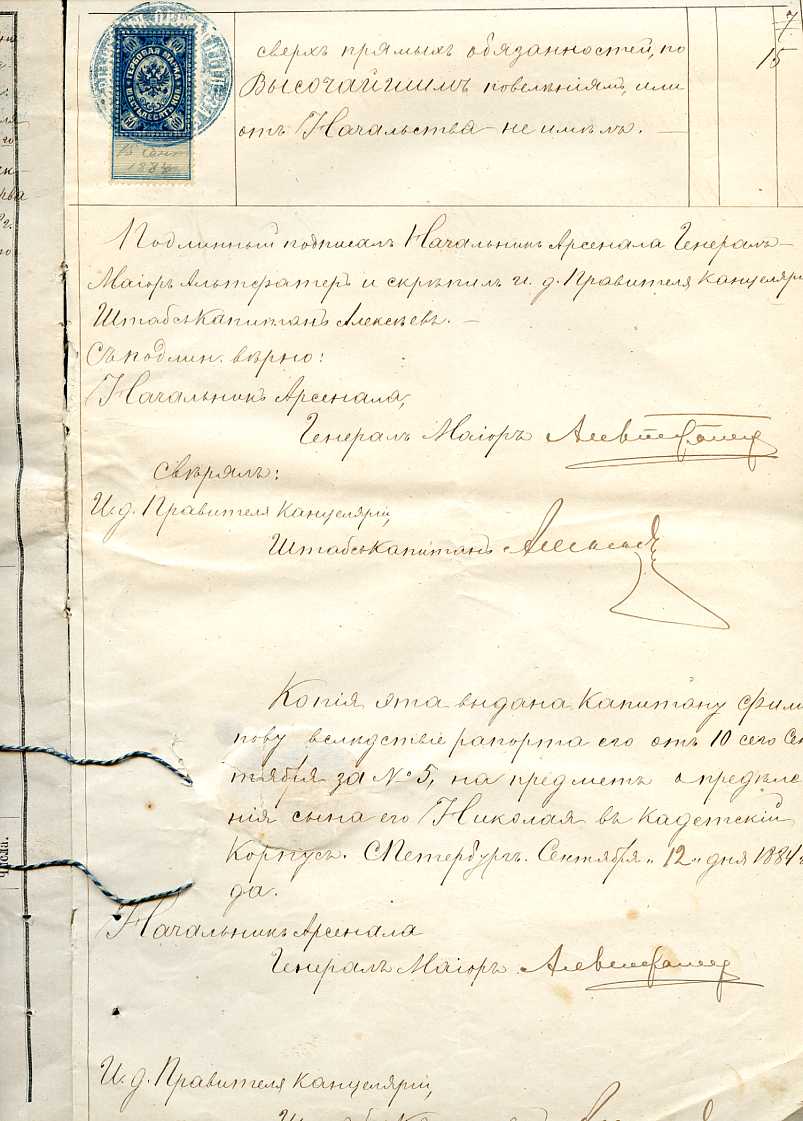 7
сверхъ прямыхъ обязанностей, по
15
Высочайшимъ повелѣніямъ, или
отъ Начальства не имѣлъ. —
ГЕРБОВАЯ МАРКА
60 60
ШЕСТЬДЕСЯТЪ КОП.
60 60
15 Сент
1884
Подлинный подписалъ Начальникъ Арсенала Генералъ-
Маіоръ Альтфатеръ и скрѣпилъ и. д. Правителя Канцеляріи
Штабсъ Капитанъ Алексѣевъ. —
Съ подлин. вѣрно:
Начальникъ Арсенала,
Генералъ Маіоръ Альтфатеръ
Свѣрялъ:
И. д. Правителя Канцеляріи,
Штабсъ Капитанъ Алексѣевъ
Копія эта выдана Капитану Филип
пову вслѣдствіе рапорта его отъ 10 сего Сен
тября за № 5, на предметъ опредѣле
нія сына его Николая въ Кадетскій
Корпусъ. СПетербургъ. Сентября „12„ дня 1884 г
да.
Числа.
Начальникъ Арсенала
Генералъ Маіоръ Альтфатеръ
И. д. Правителя Канцеляріи,